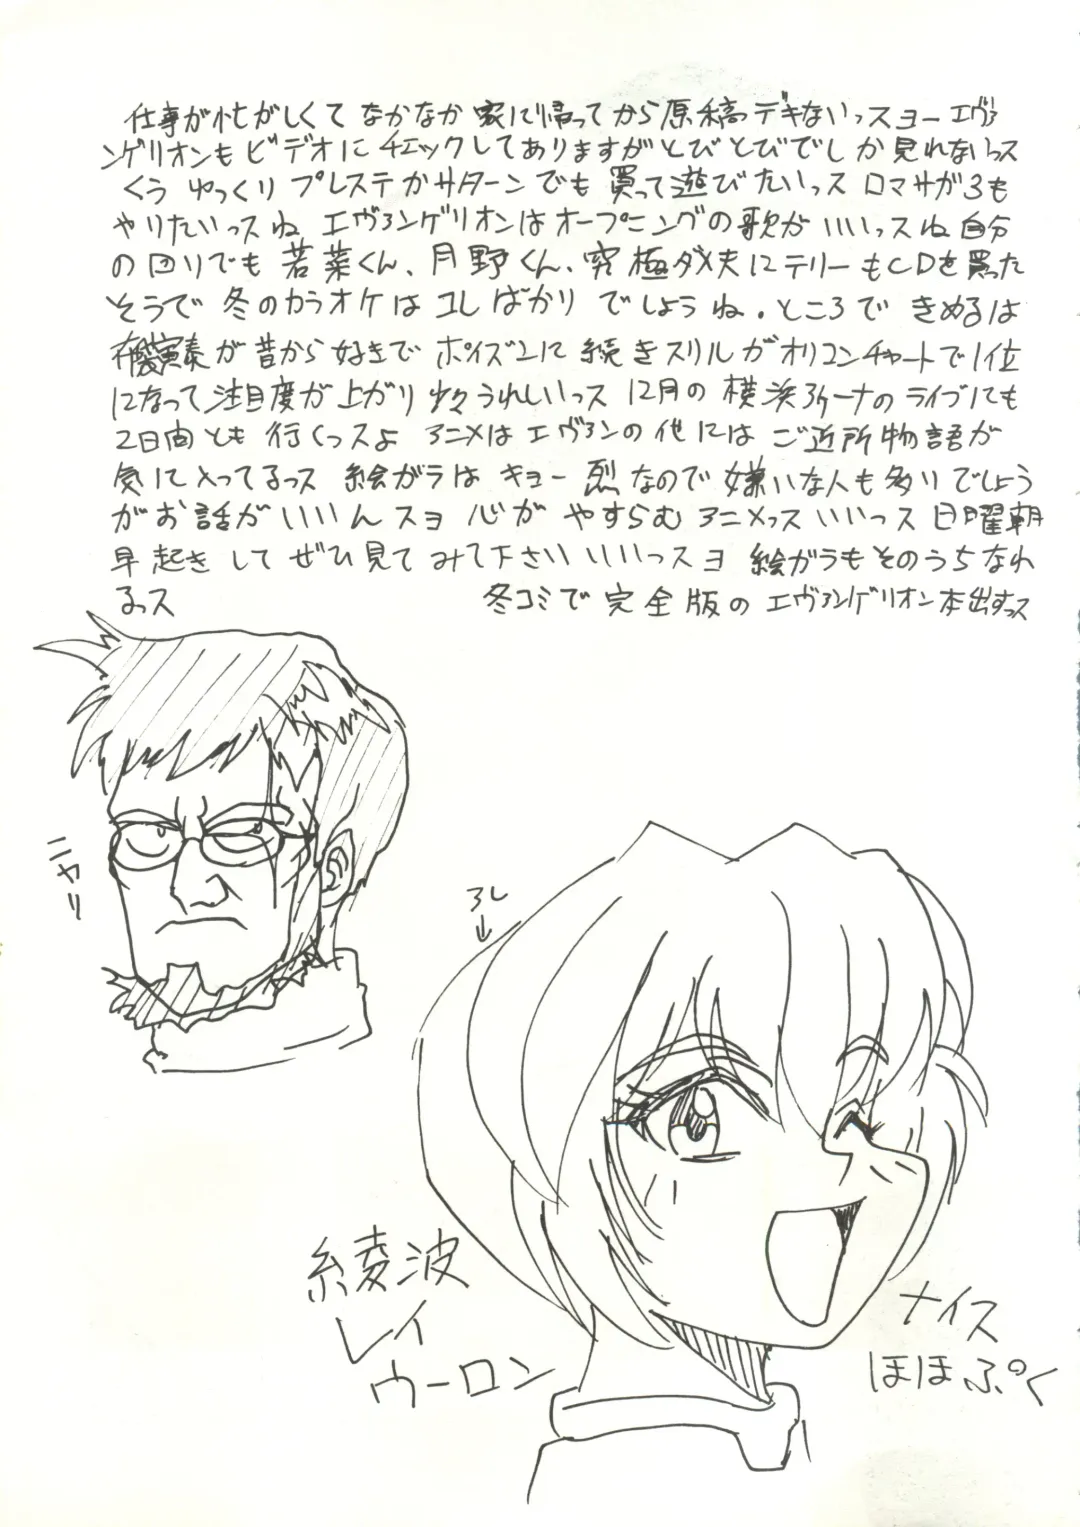 仕事が忙がしくて なかなか 家に帰ってから原稿デキないっスヨー エヴァ
ンゲリオンも ビデオに チェックしてありますがとびとびでしか見れないっス
くう ゆっくり プレステかサターンでも 買って遊びたいっス ロマサガ3も
やりたいっスね エヴァンゲリオンはオープニングの歌がいいっスね 自分
の回りでも 若菜くん、月野くん、究極ダメ夫にテリーもCDを買った
そうで 冬のカラオケは コレばかり でしょうね。ところで きめるは
が昔から好きで ポイズンに 続きスリルがオリコンチャートで1位
になって注目度が上がり 少々うれしいっス 12月の 横浜アリーナのライブにも
2日間とも 行くっスよ アニメは エヴァンの他には ご近所物語が
気に入ってるっス 絵ガラは キョー烈なので 嫌いな人も多いでしょう
がお話がいいんスヨ 心が やすらむ アニメっス いいっス 日曜朝
早起きして ぜひ見て みて下さい いいっスヨ 絵ガラもそのうちなれ
るっス
冬コミで完全版の エヴァンゲリオン本出すっス
ニヤリ
アレ
↓
綾波
レイ
ウーロン
ナイス
ほほぷく